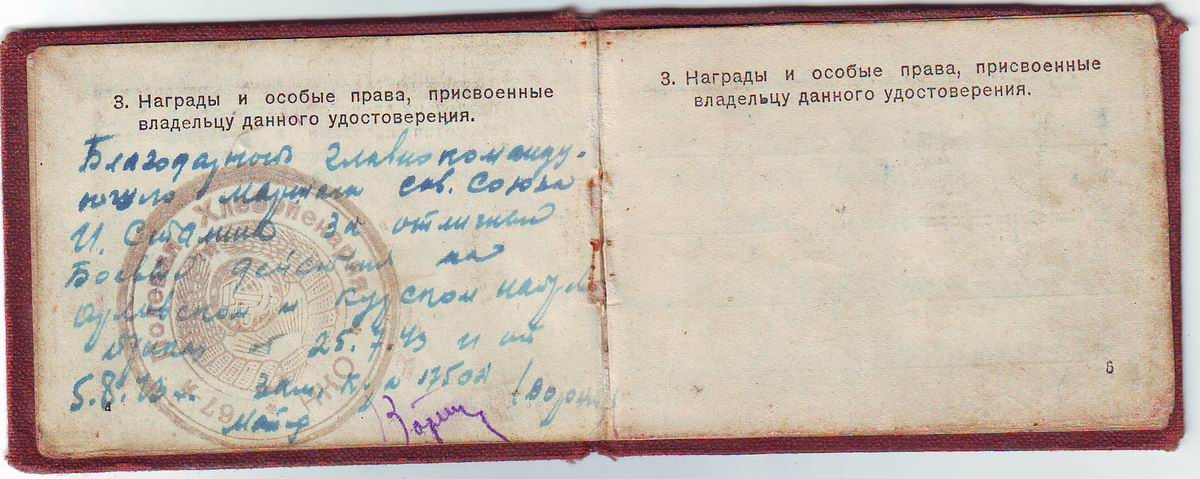 3. Награды и особые права, присвоенные
владельцу данного удостоверения.
Благодарность главнокоманду-
ющего маршала сов. Союза
И. Сталина за отличные
Боевые действия на
Орловском и курском направ
от 25.7.43 и от
5.8.43 г. Зам. к-ра 1750
Майор
Полевая Хлебопекарня
НКО
67
4
3. Награды и особые права, присвоенные
владельцу данного удостоверения.
5